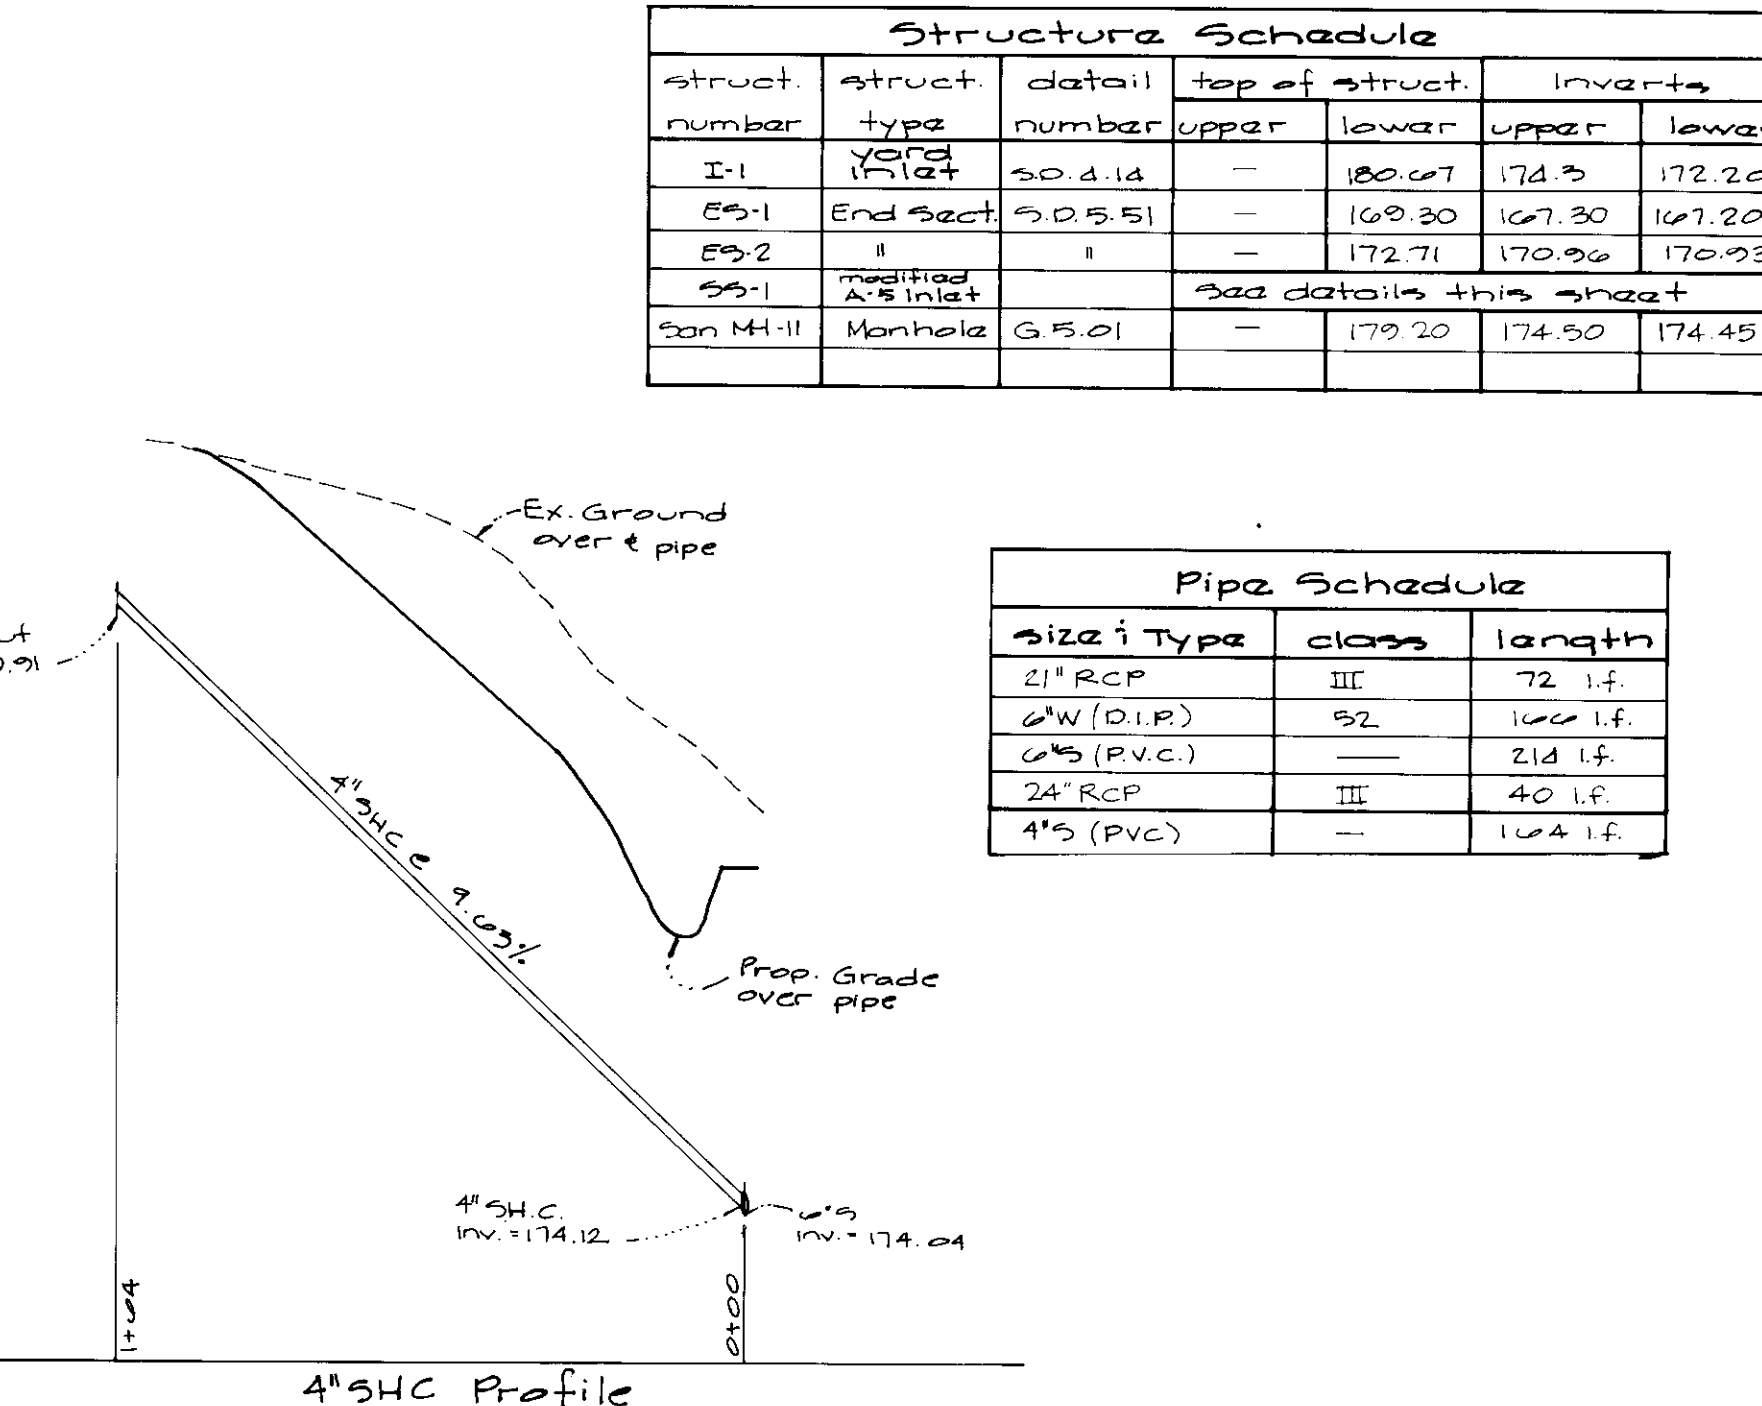 Structure Schedule
struct. number struct. type detail number top of struct. Inverts
upper lower upper lower
I-1 yard inlet S.D. 4.14 — 180.67 174.3 172.20
ES-1 End Sect. S.D. 5.51 — 169.30 167.30 167.20
ES-2 " " — 172.71 170.96 170.93
SS-1 modified A-5 Inlet see details this sheet
San MH-11 Manhole G.5.01 — 179.20 174.50 174.45
Ex. Ground
over ℄ pipe
Pipe Schedule
size & Type class length
21" RCP III 72 l.f.
6"W (D.I.P.) 52 166 l.f.
6"S (P.V.C.) — 214 l.f.
24" RCP III 40 l.f.
4"S (PVC) — 164 l.f.
4" SHC @ 9.63%
Prop. Grade
over pipe
4" SH.C.
Inv. = 174.12
6"S
Inv. = 174.04
1+64
0+00
4" SHC Profile